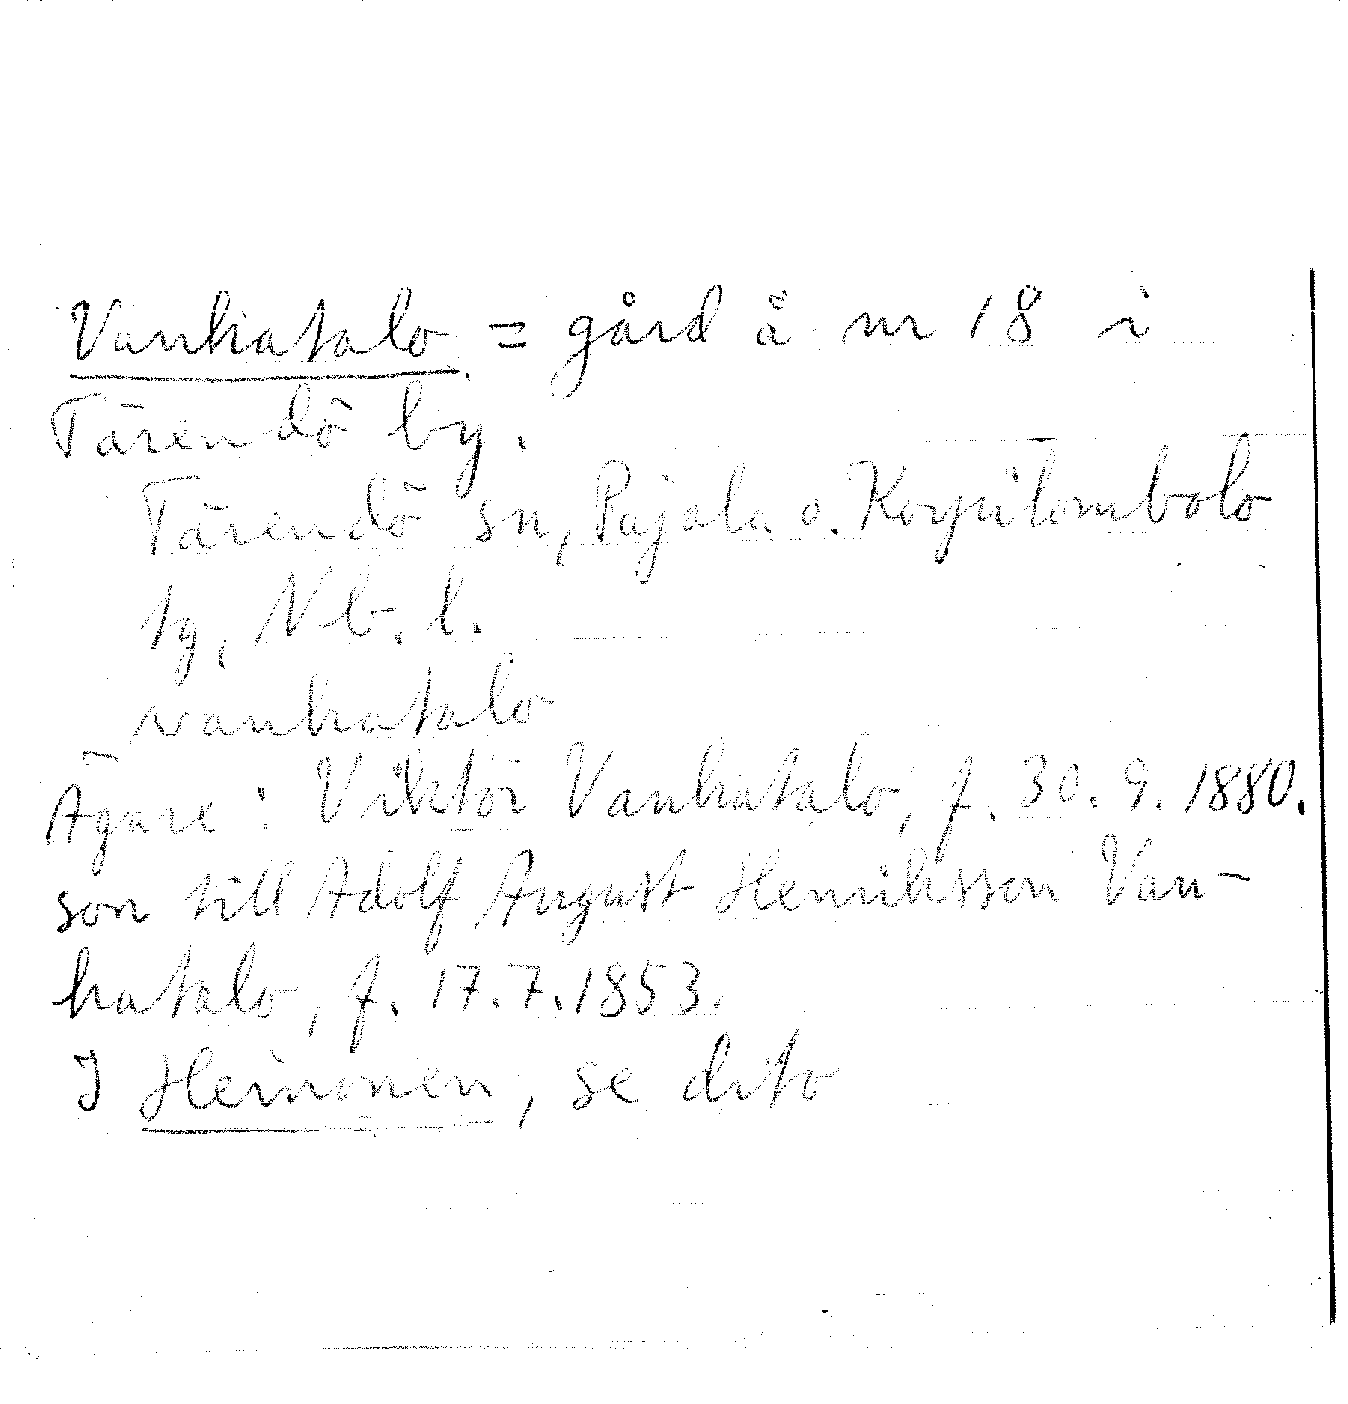 Vanhatalo = gård å nr 18 i
Tärendö by.
Tärendö sn, Pajala o. Korpilombolo
tg, Nb. l.
vanhatalo
Ägare: Viktor Vanhatalo, f. 30.9.1880.
son till Adolf August Henriksson Van-
hatalo, f. 17.7.1853.
I Heinonen, se dito